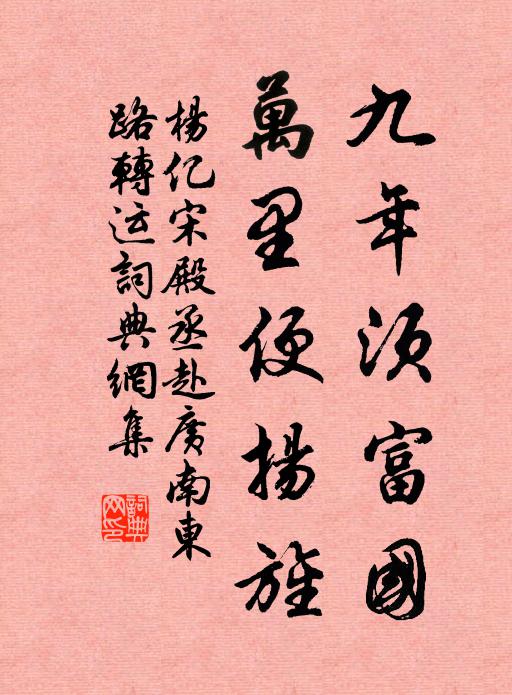 九年須富國
萬里便揚旌
楊亿宋殿丞赴廣南東
路轉运詞典網集
詞典
网印